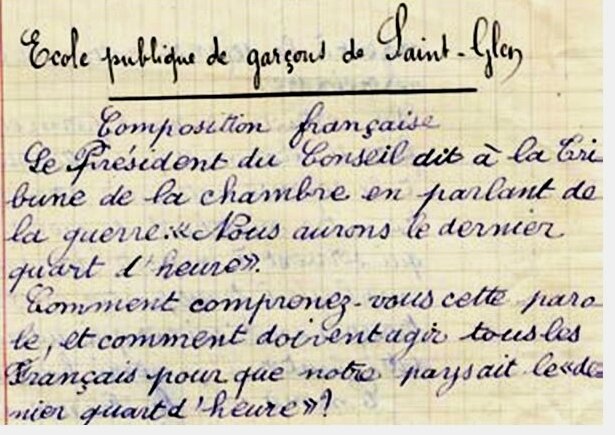 Ecole publique de garçons de Saint-Glen
Composition française
Le Président du Conseil dit à la Tri
bune de la chambre en parlant de
la guerre: «Nous aurons le dernier
quart d'heure».
Comment comprenez-vous cette paro
le, et comment doivent agir tous les
Français pour que notre pays ait le «der
nier quart d'heure»?